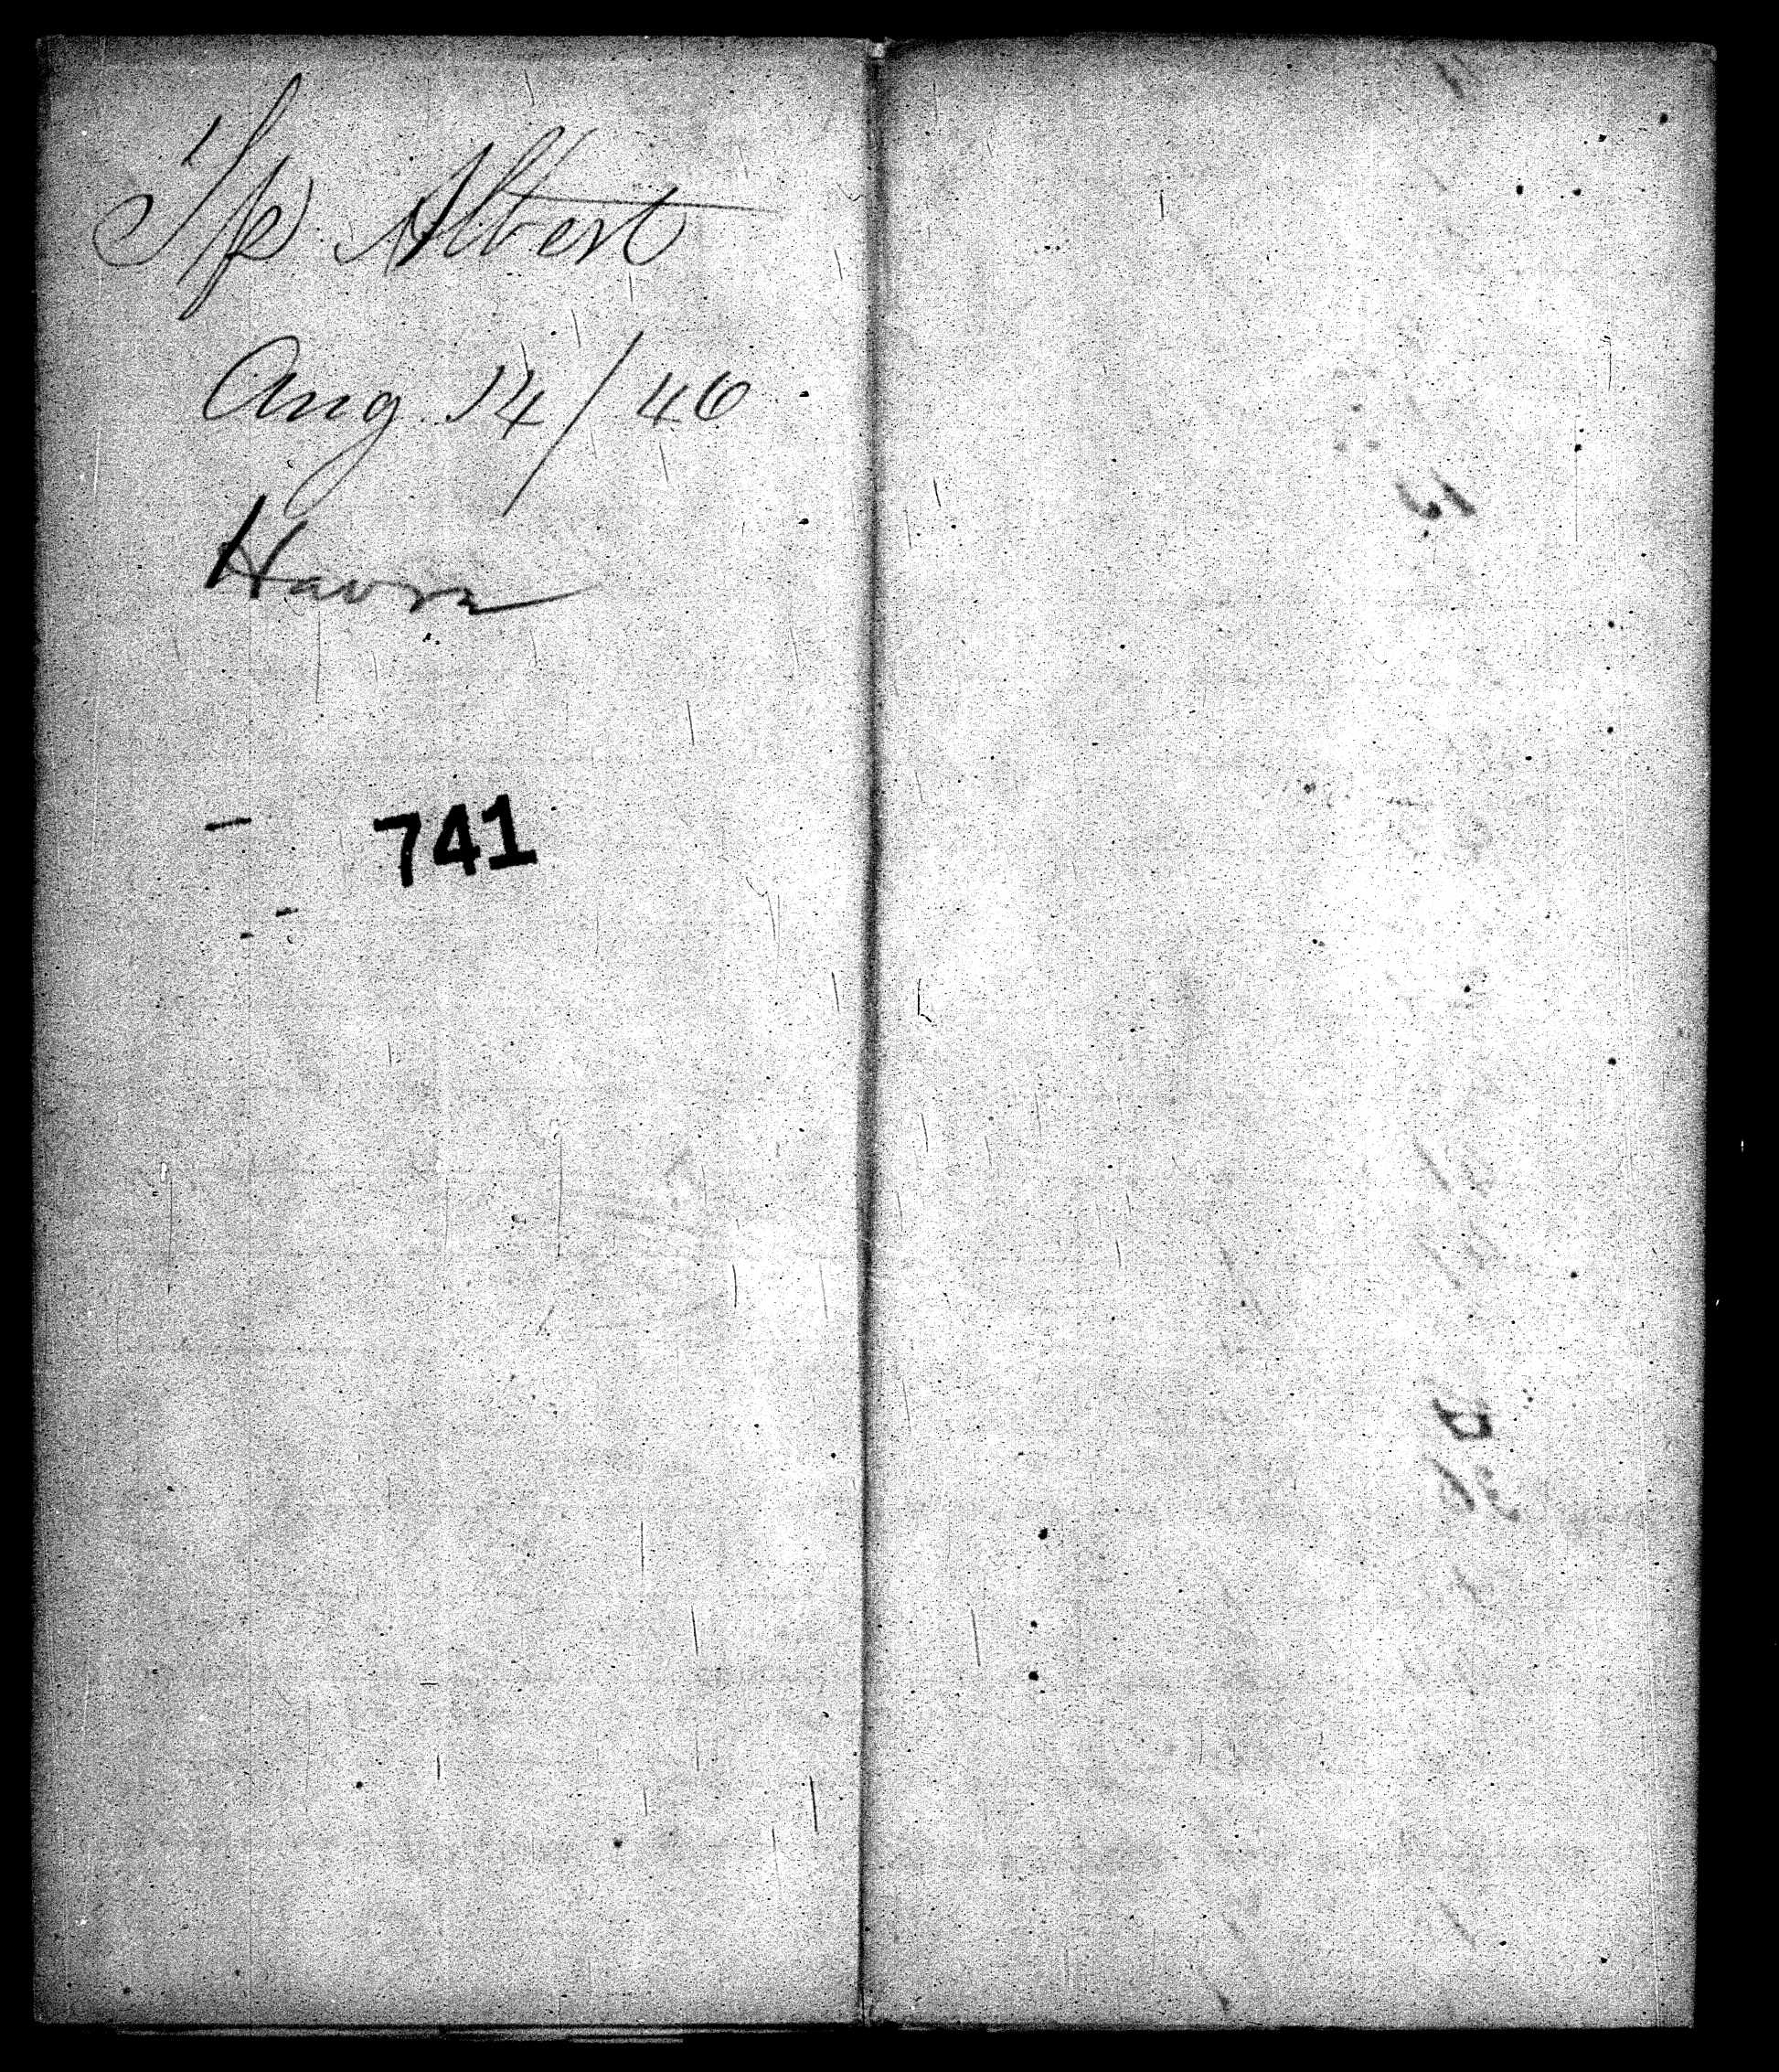 S/p Albert
Aug 14/46
Havre
741